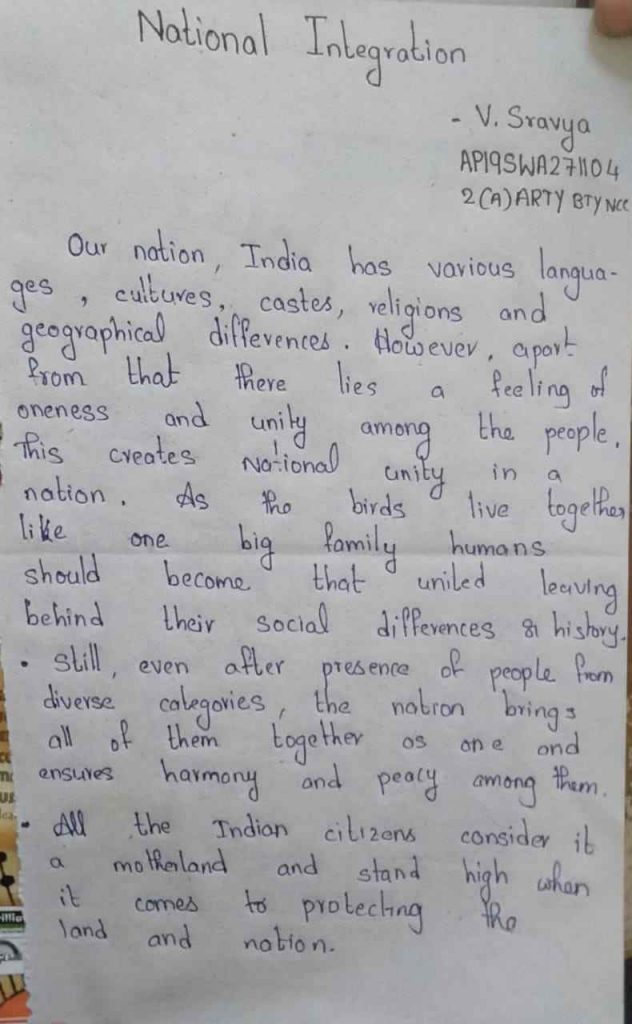 National Integration
- V. Sravya
AP19SWA271104
2(A) ARTY BTY NCC
Our nation, India has various langua-
ges, cultures, castes, religions and
geographical differences. However, apart
from that there lies a feeling of
oneness and unity among the people.
This creates National unity in a
nation. As the birds live together
like one big family humans
should become that united leaving
behind their social differences & history.
• Still, even after presence of people from
diverse categories, the nation brings
all of them together as one and
ensures harmony and peacy among them.
• All the Indian citizens consider it
a motherland and stand high when
it comes to protecting the
land and nation.